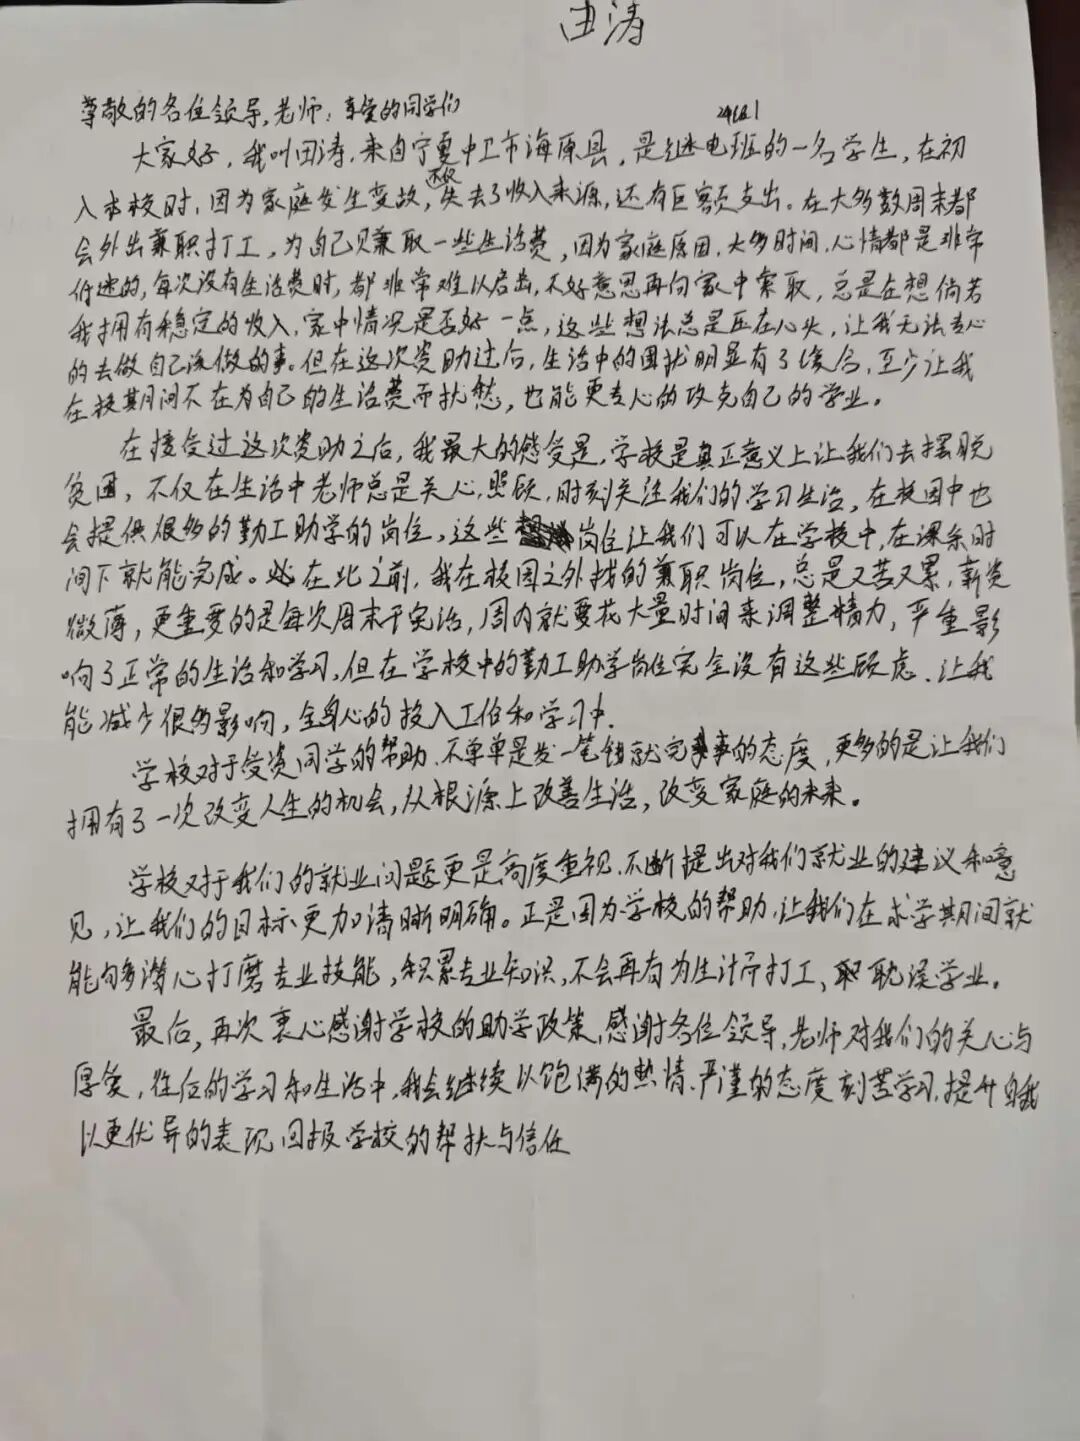 田涛
尊敬的各位领导,老师,亲爱的同学们
大家好,我叫田涛,来自宁夏中卫市海原县,是继电班的一名学生,在初
不仅
入本校时,因为家庭发生变故,失去了收入来源,还有巨额支出。在大多数周末都
会外出兼职打工,为自己贝兼取一些生活费,因为家庭原因,大多时间,心情都是非常
低迷的,每次没有生活费时,都非常难以启齿,不好意思再向家中索取,总是在想倘若
我拥有稳定的收入,家中情况是否好一点,这些想法总是压在心头,让我无法专心
的去做自己该做的事。但在这次资助过后,生活中的困扰明显有了缓合,至少让我
在校期间不在为自己的生活费而扰愁,也能更专心的攻克自己的学业。
在接受过这次资助之后,我最大的感受是,学校是真正意义上让我们去摆脱
贫困,不仅在生活中老师总是关心,照顾,时刻关注我们的学习生活,在校园中也
会提供很多的勤工助学的岗位,这些岗位让我们可以在学校中,在课余时
间下就能完成。在此之前,我在校园之外找的兼职岗位,总是又苦又累,薪资
微薄,更重要的是每次周末干完活,周内就要花大量时间来调整精力,严重影
响了正常的生活和学习,但在学校中的勤工助学岗位完全没有这些顾虑,让我
能减少很多影响,全身心的投入工作和学习中.
学校对于受资同学的帮助,不单单是发一笔钱就完事的态度,更多的是让我们
拥有了一次改变人生的机会,从根源上改善生活,改变家庭的未来。
学校对于我们的就业问题更是高度重视,不断提出对我们就业的建议和意
见,让我们的目标更加清晰明确。正是因为学校的帮助,让我们在求学期间就
能够多潜心打磨专业技能,积累专业知识,不会再有为生计而打工、耽误学业。
最后,再次衷心感谢学校的助学政策,感谢各位领导,老师对我们的关心与
厚爱,往后的学习和生活中,我会继续以饱满的热情,严谨的态度刻苦学习,提升自我
以更优异的表现,回报学校的帮扶与信任